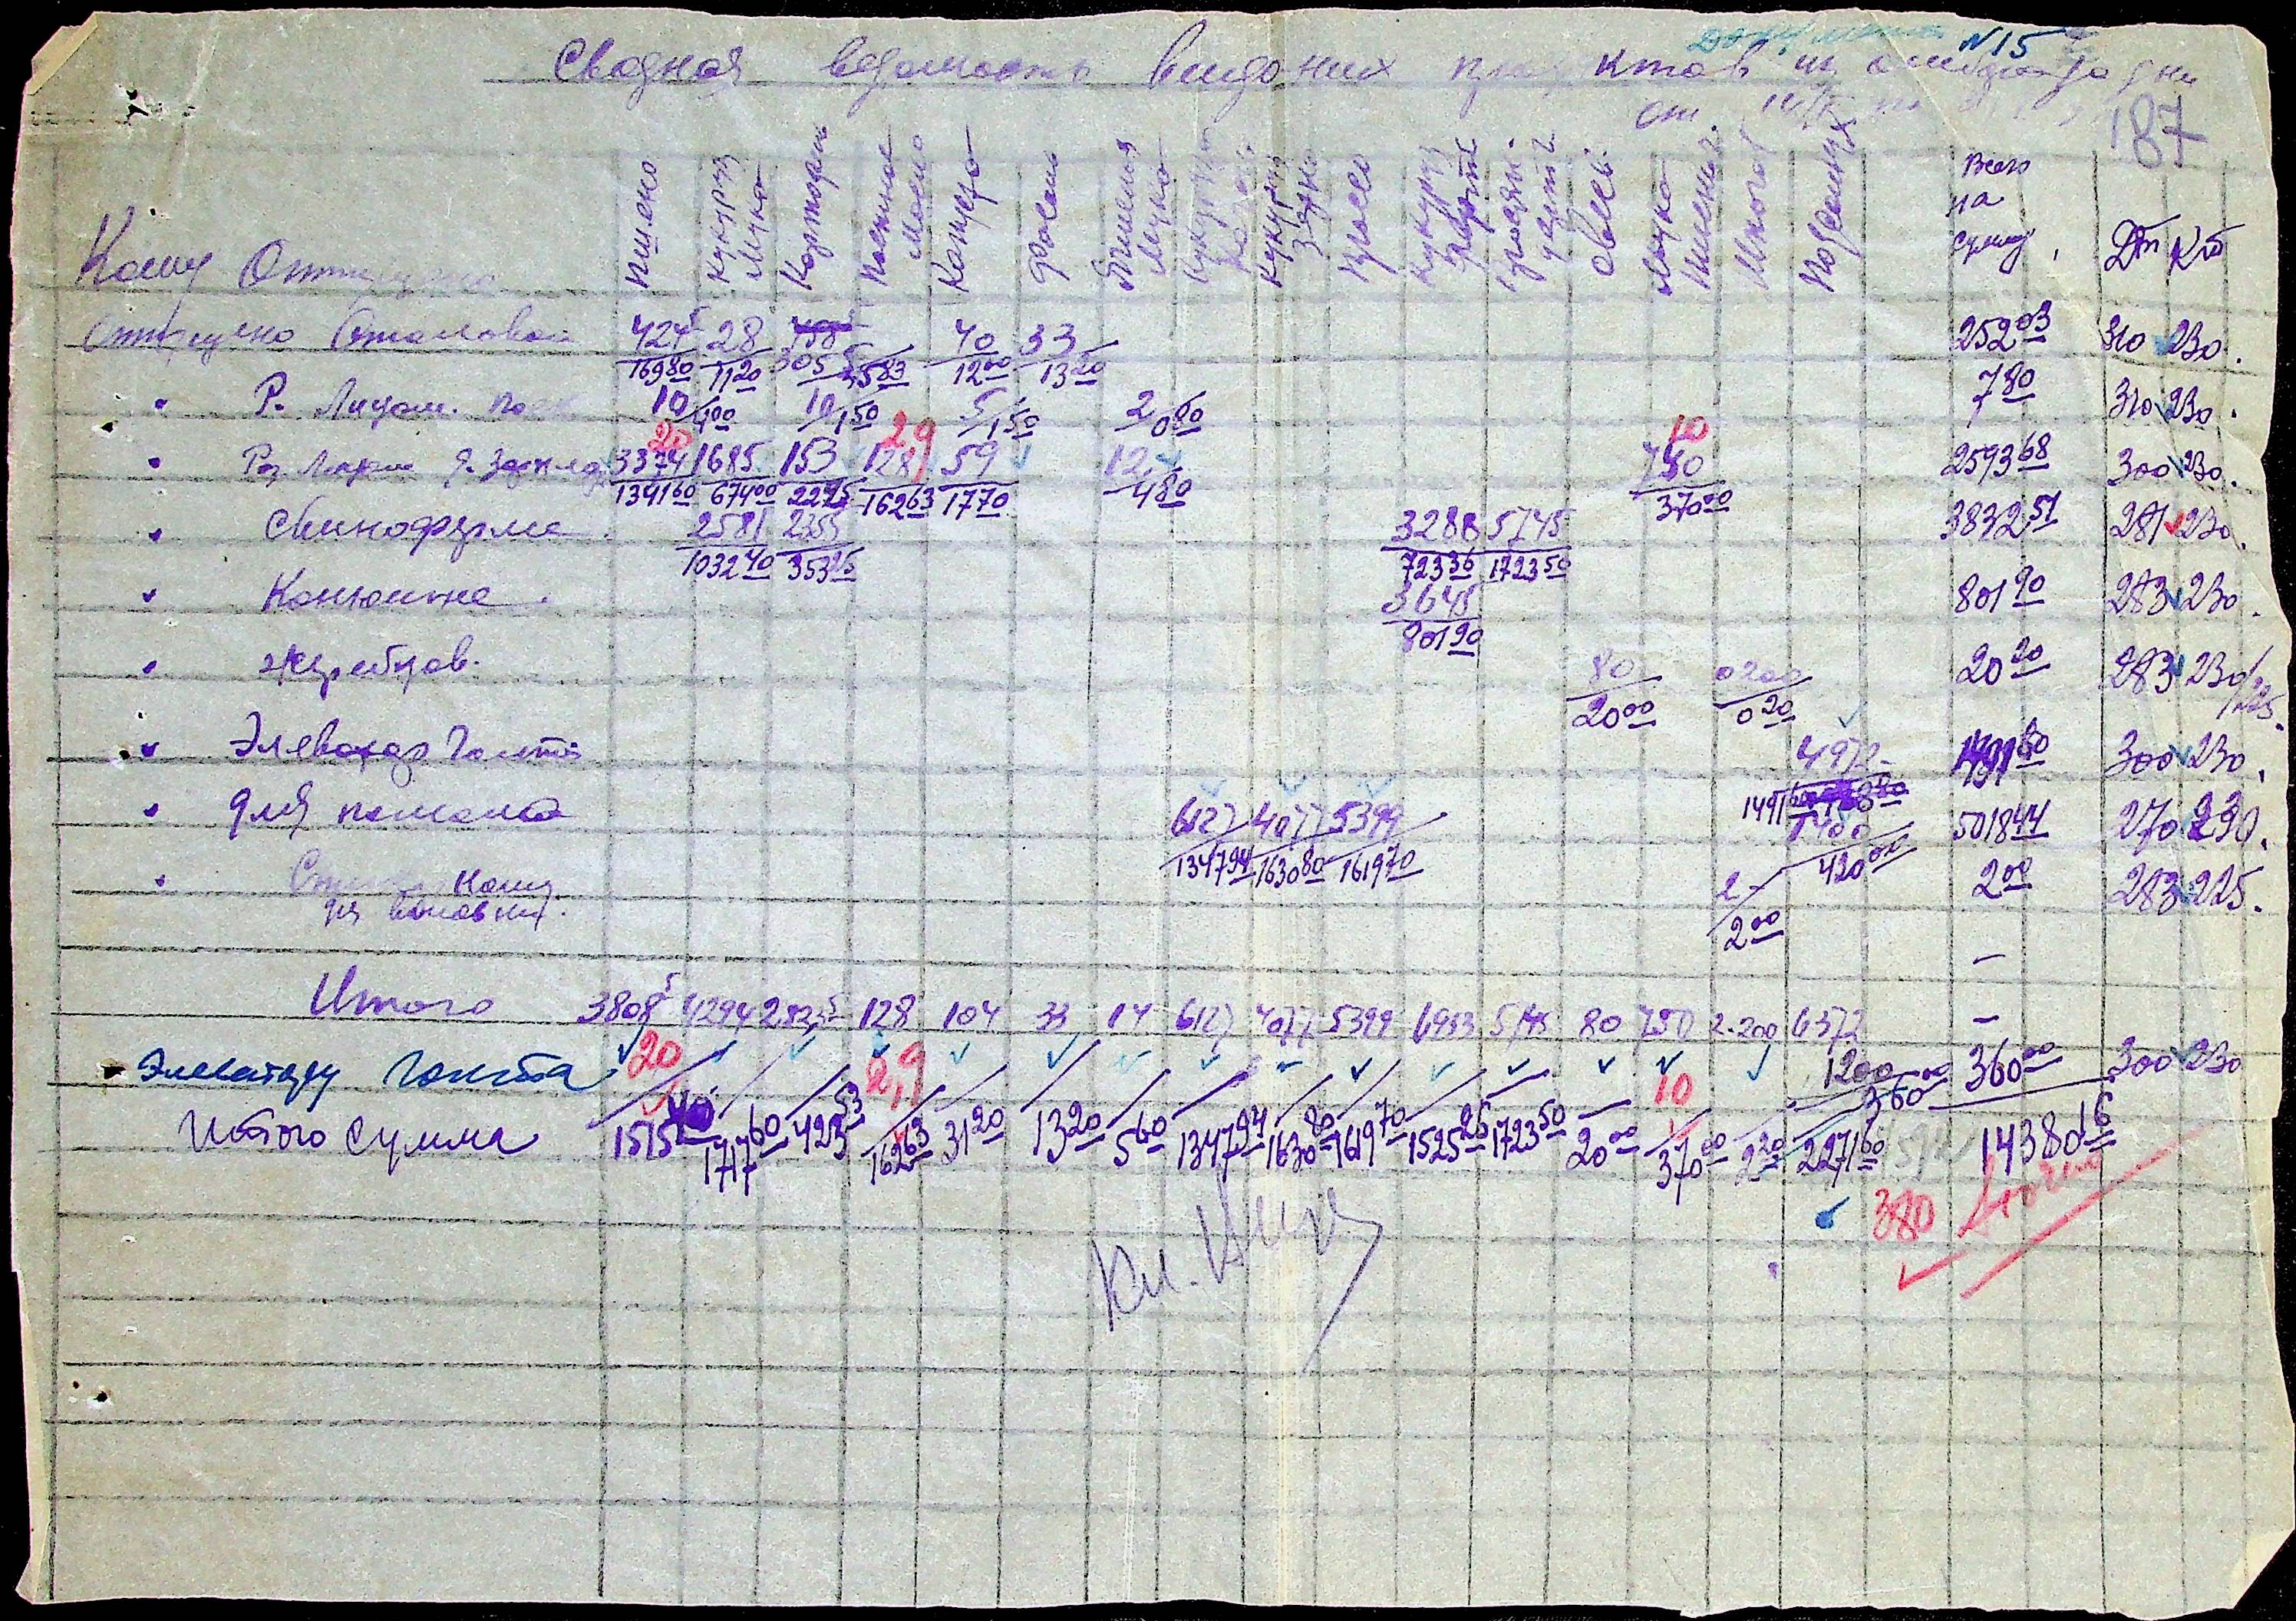 N15
Сводная ведомость виданих продуктов из
от
187
Кому Отпущено Пшено Кукуруз Мука Картофель Постное Масло Капуста Фасоль Ячмения Мука Кукуруз Кукуруз Зерно Просо Кукуруз дерть Просян. дерть Овесь Мука Пшенич. Много Подсолнух Всего на сумму Дт Кт
Отпущено Столовой 424⁵ 28 40 33 252 03 310 230.
169 80 11 20 305⁵ 45 83 12 00 13 20
" Р. Лицам. 10/4 00 10/1 50 5/1 50 2/0 80 7 80 310 230.
20 2,9 10
" Раз. Лицам 3374 1685 153 128 59 12 750 2593 68 300 230.
1341 60 674 00 22 95 162 63 17 70 4 80 370 00
" Свиноферме 2581 2355 3288 5745 3832 51 281 230.
1032 40 353 25 723 36 1723 50
" Конюшне. 3645 801 90 283 230.
801 90
" Жеребцов. 80 0 200 20 20 283 230/225.
20 00 0 20
" Элеватор Гокта 4972 1491 60 300 230.
1491 60
" Для посева 6127 4077 5399 1400 5018 44 270 230.
1347 94 1630 80 1619 70 420 00
" 2 2 00 283 225.
2 00
—
Итого 3808⁵ 4294 128 104 33 14 6127 4077 5399 6933 5745 80 750 2.200 6372 —
Элеватору Гокта 20 2,9 10 1200 360 00 300 230
360 00
Итого Сумма 1515 40 1717 60 423 53 162 63 31 20 13 20 5 60 1347 94 1630 80 1619 70 1525 26 1723 50 20 00 370 00 2 20 2271 60 14380 16
380